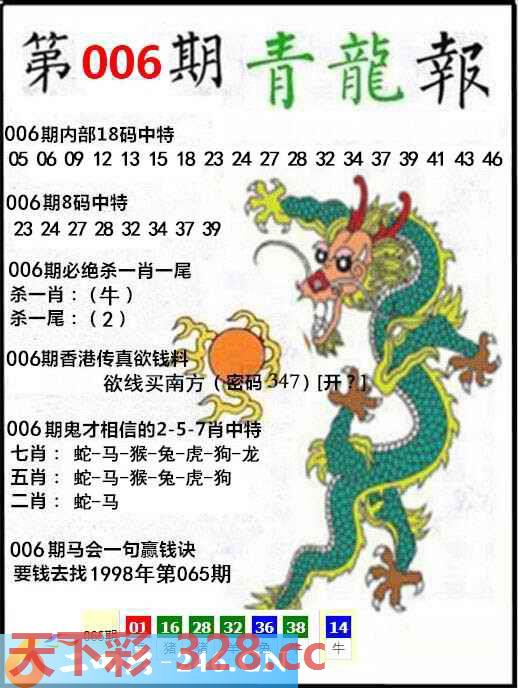 第006期青龍報
006期内部18码中特
05 06 09 12 13 15 18 23 24 27 28 32 34 37 39 41 43 46
006期8码中特
23 24 27 28 32 34 37 39
006期必绝杀一肖一尾
杀一肖：（牛）
杀一尾：（2）
006期香港传真欲钱料
欲线买南方（密码347）[开？]
006期鬼才相信的2-5-7肖中特
七肖：蛇-马-猴-兔-虎-狗-龙
五肖：蛇-马-猴-兔-虎-狗
二肖：蛇-马
006期马会一句赢钱诀
要钱去找1998年第065期
006期 01 16 28 32 36 38 14
猪 牛
天下彩-328.cc